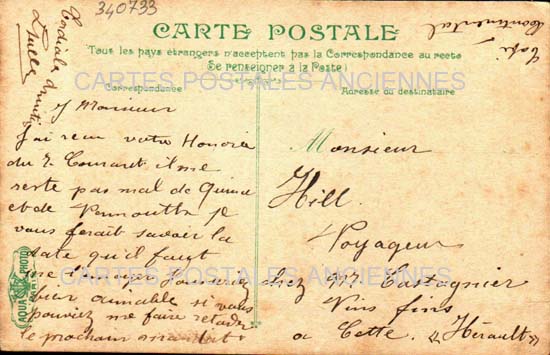 340733
CARTE POSTALE
Tous les pays étrangers n'acceptent pas la Correspondance au recto
(Se renseigner à la Poste)
CARTES POSTALES ANCIENNES
Correspondance
Adresse du destinataire
Monsieur
J'ai reçu votre Honorée
du 7 Courant il me
reste pas mal de
et de je
vous ferait savoir la
date qu'il faut
me l'envoyer
bien aimable si vous
pouviez me faire retarder
le prochain
Cordiale
Café
Continental
Monsieur
Hill
Voyageur
chez Mr Castagnier
Vins fins
a Cette "Hérault"
CARTES POSTALES ANCIENNES
AQUA PHOTO
PARIS